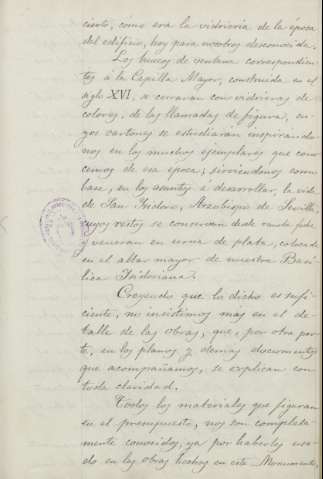 cierto, cómo era la vidriería de la época
del edificio, hoy para nosotros desconocida.
Los huecos de ventana correspondien-
tes á la Capilla Mayor, construida en el
siglo XVI, se cerraran con vidrieras de
colores, de las llamadas de figura, cu-
yos cartones se estudiarán inspirándo-
nos en los muchos ejemplares que cono-
cemos de esa época; sirviéndonos como
base, en los asuntos a desarrollar, la vida
de San Isidoro, Arzobispo de Sevilla,
cuyos restos se conservan desde remota fecha
y veneran en urna de plata, colocada
en el altar mayor de nuestra Basí-
lica Isidoriana.
Creyendo que lo dicho es sufi-
ciente, no insistimos más en el de-
talle de las obras, que, por otra par-
te, en los planos y demas documentos
que acompañamos, se explican con
toda claridad.
Todos los materiales que figuran
en el presupuesto, nos son completa-
mente conocidos, ya por haberlos usa-
do en las obras hechas en este Monumento,